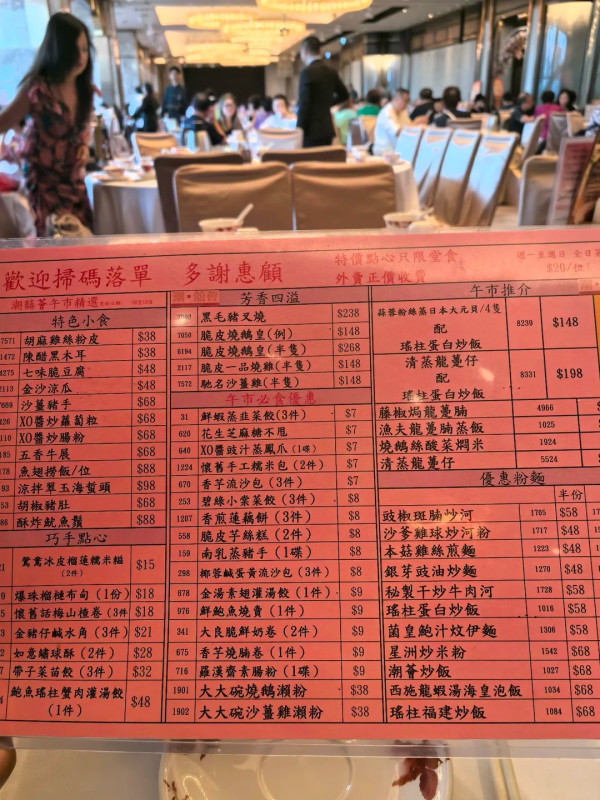 歡迎掃碼落單 多謝惠顧
特價點心只限堂食
外賣正價收費
週一至週日 全日
$20/位
潮囍薈午市精選
特色小食
7571 胡麻雞絲粉皮 $38
1472 陳醋黑木耳 $38
4275 七味脆豆腐 $48
2113 金沙涼瓜 $48
7669 沙薑豬手 $68
XO醬炒蘿蔔粒 $68
XO醬炒腸粉 $68
五香牛展 $68
魚翅撈飯/位 $88
涼拌翠玉海蜇頭 $98
胡椒豬肚 $68
酥炸魷魚鬚 $88
巧手點心
鴛鴦冰皮榴蓮糯米糍 (2件) $15
爆珠榴槤布甸 (1份) $18
懷舊話梅山楂卷 (3件 $18
金豬仔鹹水角 (3件) $21
如意繡球酥 (2件) $28
帶子菜苗餃 (3件) $32
鮑魚瑤柱蟹肉灌湯餃 (1件) $48
芳香四溢
黑毛豬叉燒 $238
7050 脆皮燒鵝皇(例) $148
6194 脆皮燒鵝皇(半隻) $268
2117 脆皮一品燒雞(半隻) $148
7572 馳名沙薑雞(半隻) $148
午市必食優惠
31 鮮蝦蒸韭菜餃(3件) $7
620 花生芝麻糖不甩 $7
640 XO醬豉汁蒸鳳爪(1碟) $7
1224 懷舊手工糯米包 (2件) $7
670 香芋流沙包 (3件) $7
253 碧綠小棠菜餃 (3件) $8
1207 香煎蓮藕餅 (3件) $8
558 脆皮芋絲糕 (2件) $8
159 南乳蒸豬手 (1碟) $8
298 椰蓉鹹蛋黃流沙包 (3件) $8
678 金湯素翅灌湯餃 (1件) $9
976 鮮鮑魚燒賣 (1件) $9
341 大良脆鮮奶卷 (2件) $9
675 香芋燒腩卷 (1件) $9
716 羅漢齋素腸粉 (1碟) $9
1901 大大碗燒鵝瀨粉 $38
1902 大大碗沙薑雞瀨粉 $38
午市推介
蒜蓉粉絲蒸日本大元貝/4隻 配 瑤柱蛋白炒飯 8239 $148
清蒸龍躉仔 配 瑤柱蛋白炒飯 8331 $198
藤椒焗龍躉腩 4966
漁夫龍躉腩蒸飯 1025
燒鵝絲酸菜燜米 1924
清蒸龍躉仔 5524
優惠粉麵
半份
豉椒斑腩炒河 1705 $58
沙爹雞球炒河粉 1717 $48
本菇雞絲煎麵 1223 $48
銀芽豉油炒麵 1270 $48
秘製干炒牛肉河 1728 $58
瑤柱蛋白炒飯 1016 $58
菌皇鮑汁炆伊麵 1306 $58
星洲炒米粉 1542 $68
潮薈炒飯 1027 $68
西施龍蝦湯海皇泡飯 1034 $68
瑤柱福建炒飯 1084 $68